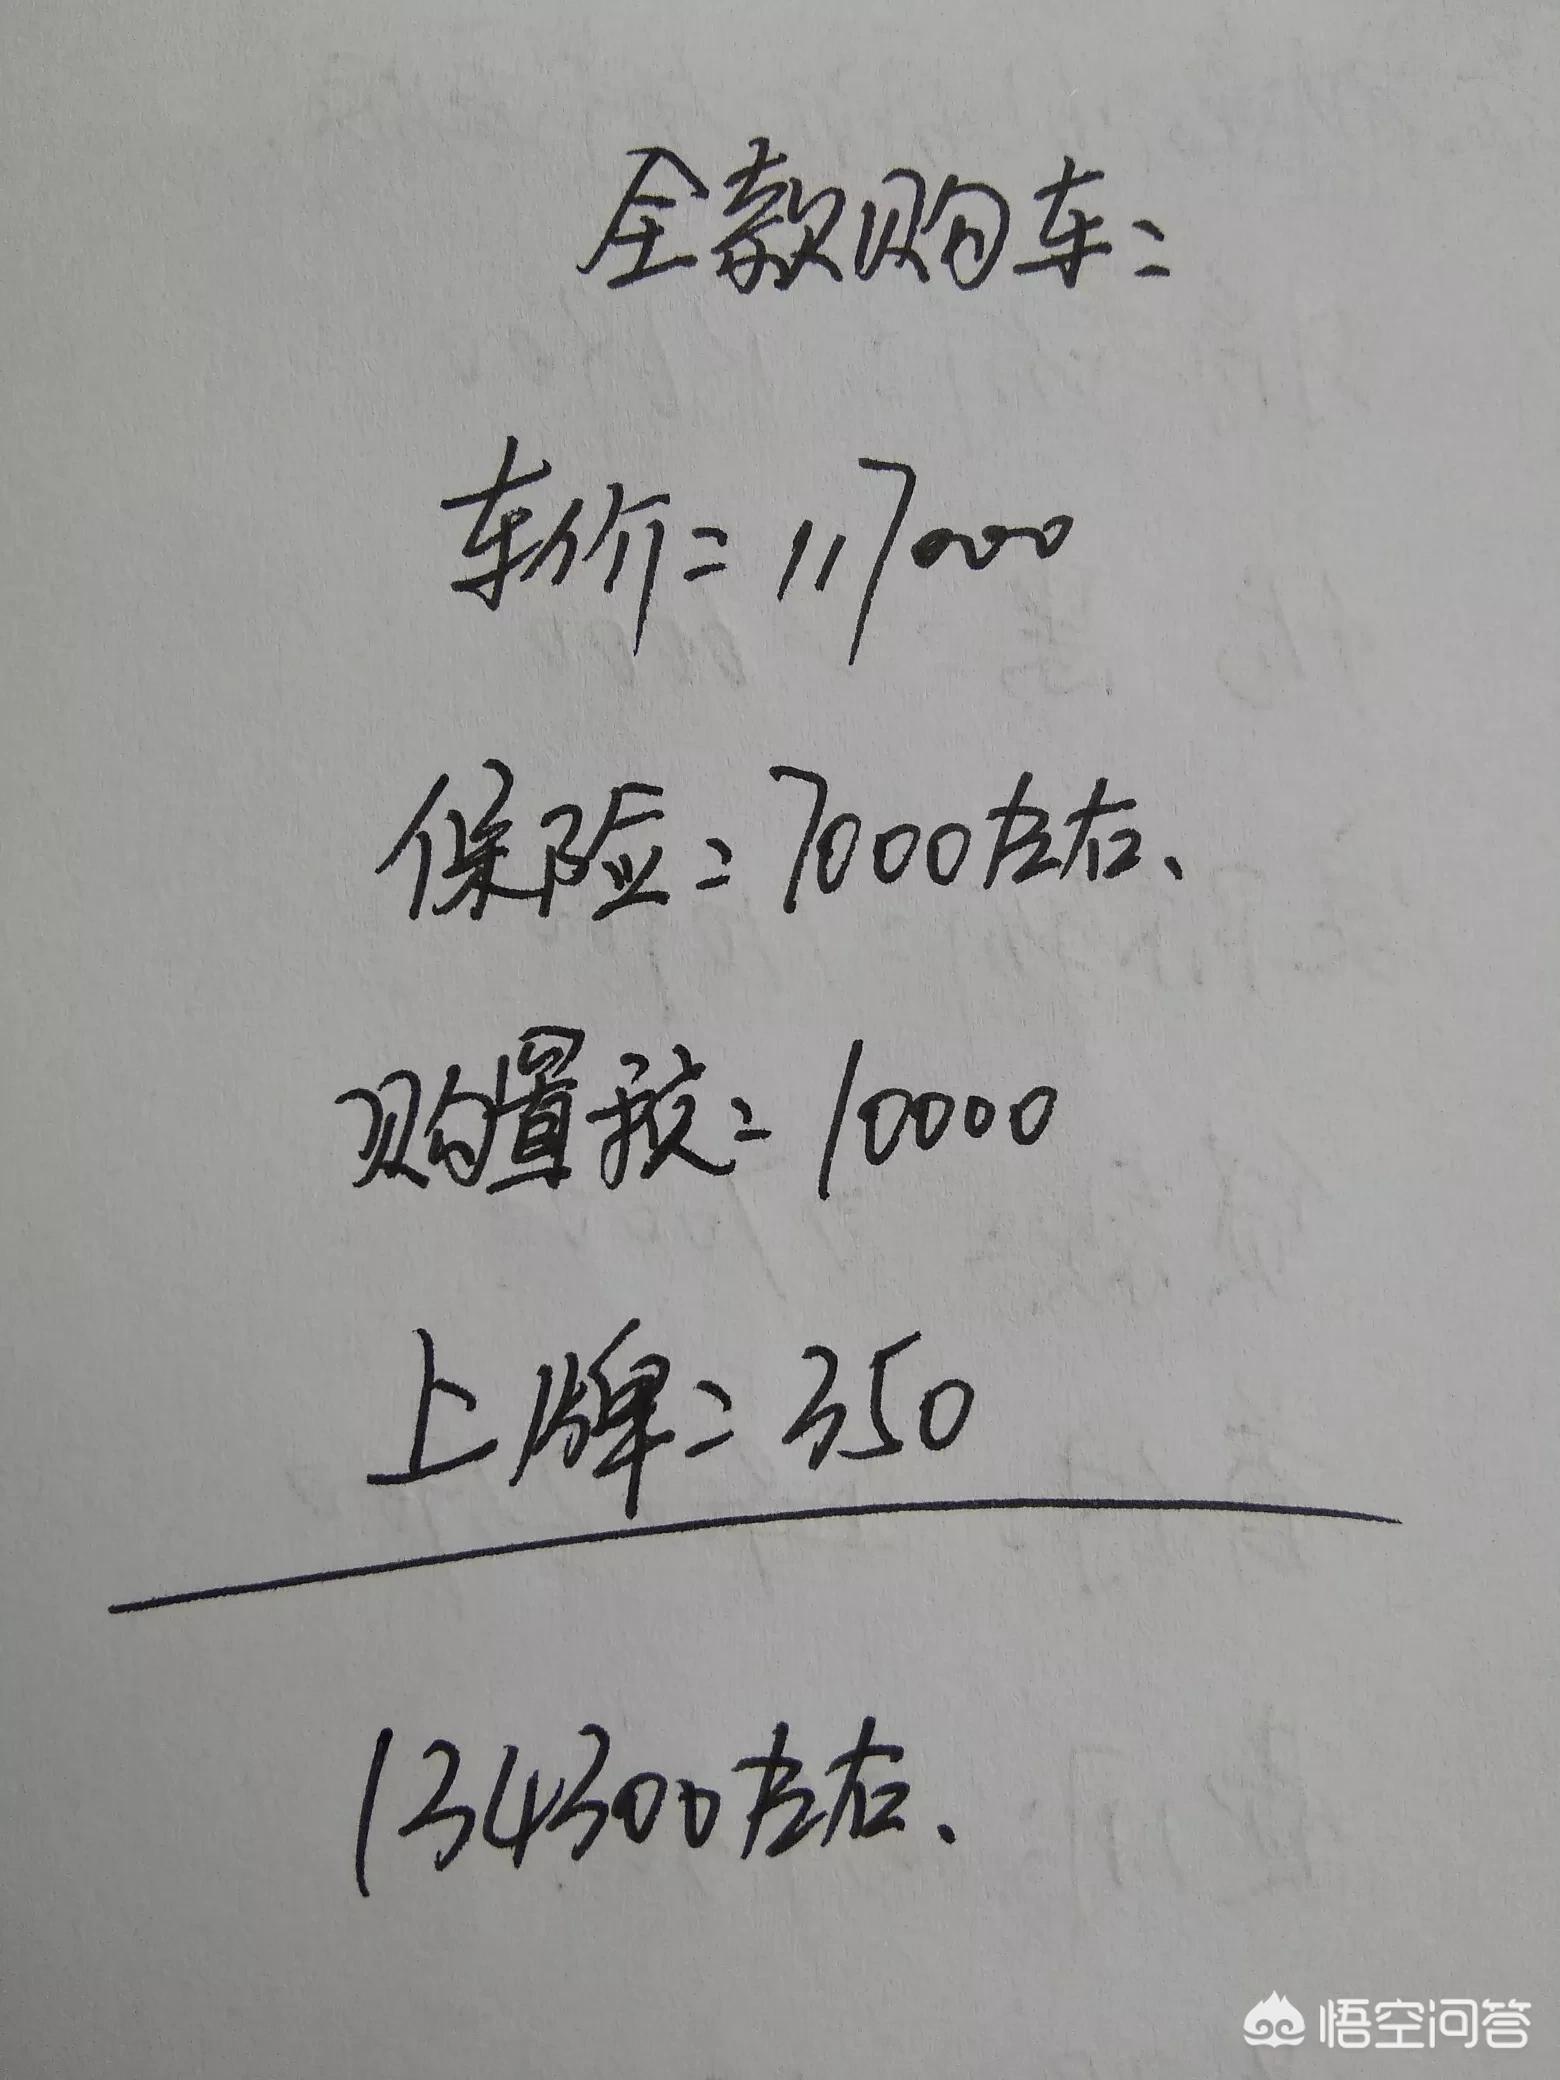 全款购车:
车价:117000
保险:7000左右、
购置税:10000
上牌:350
134300左右、
悟空问答